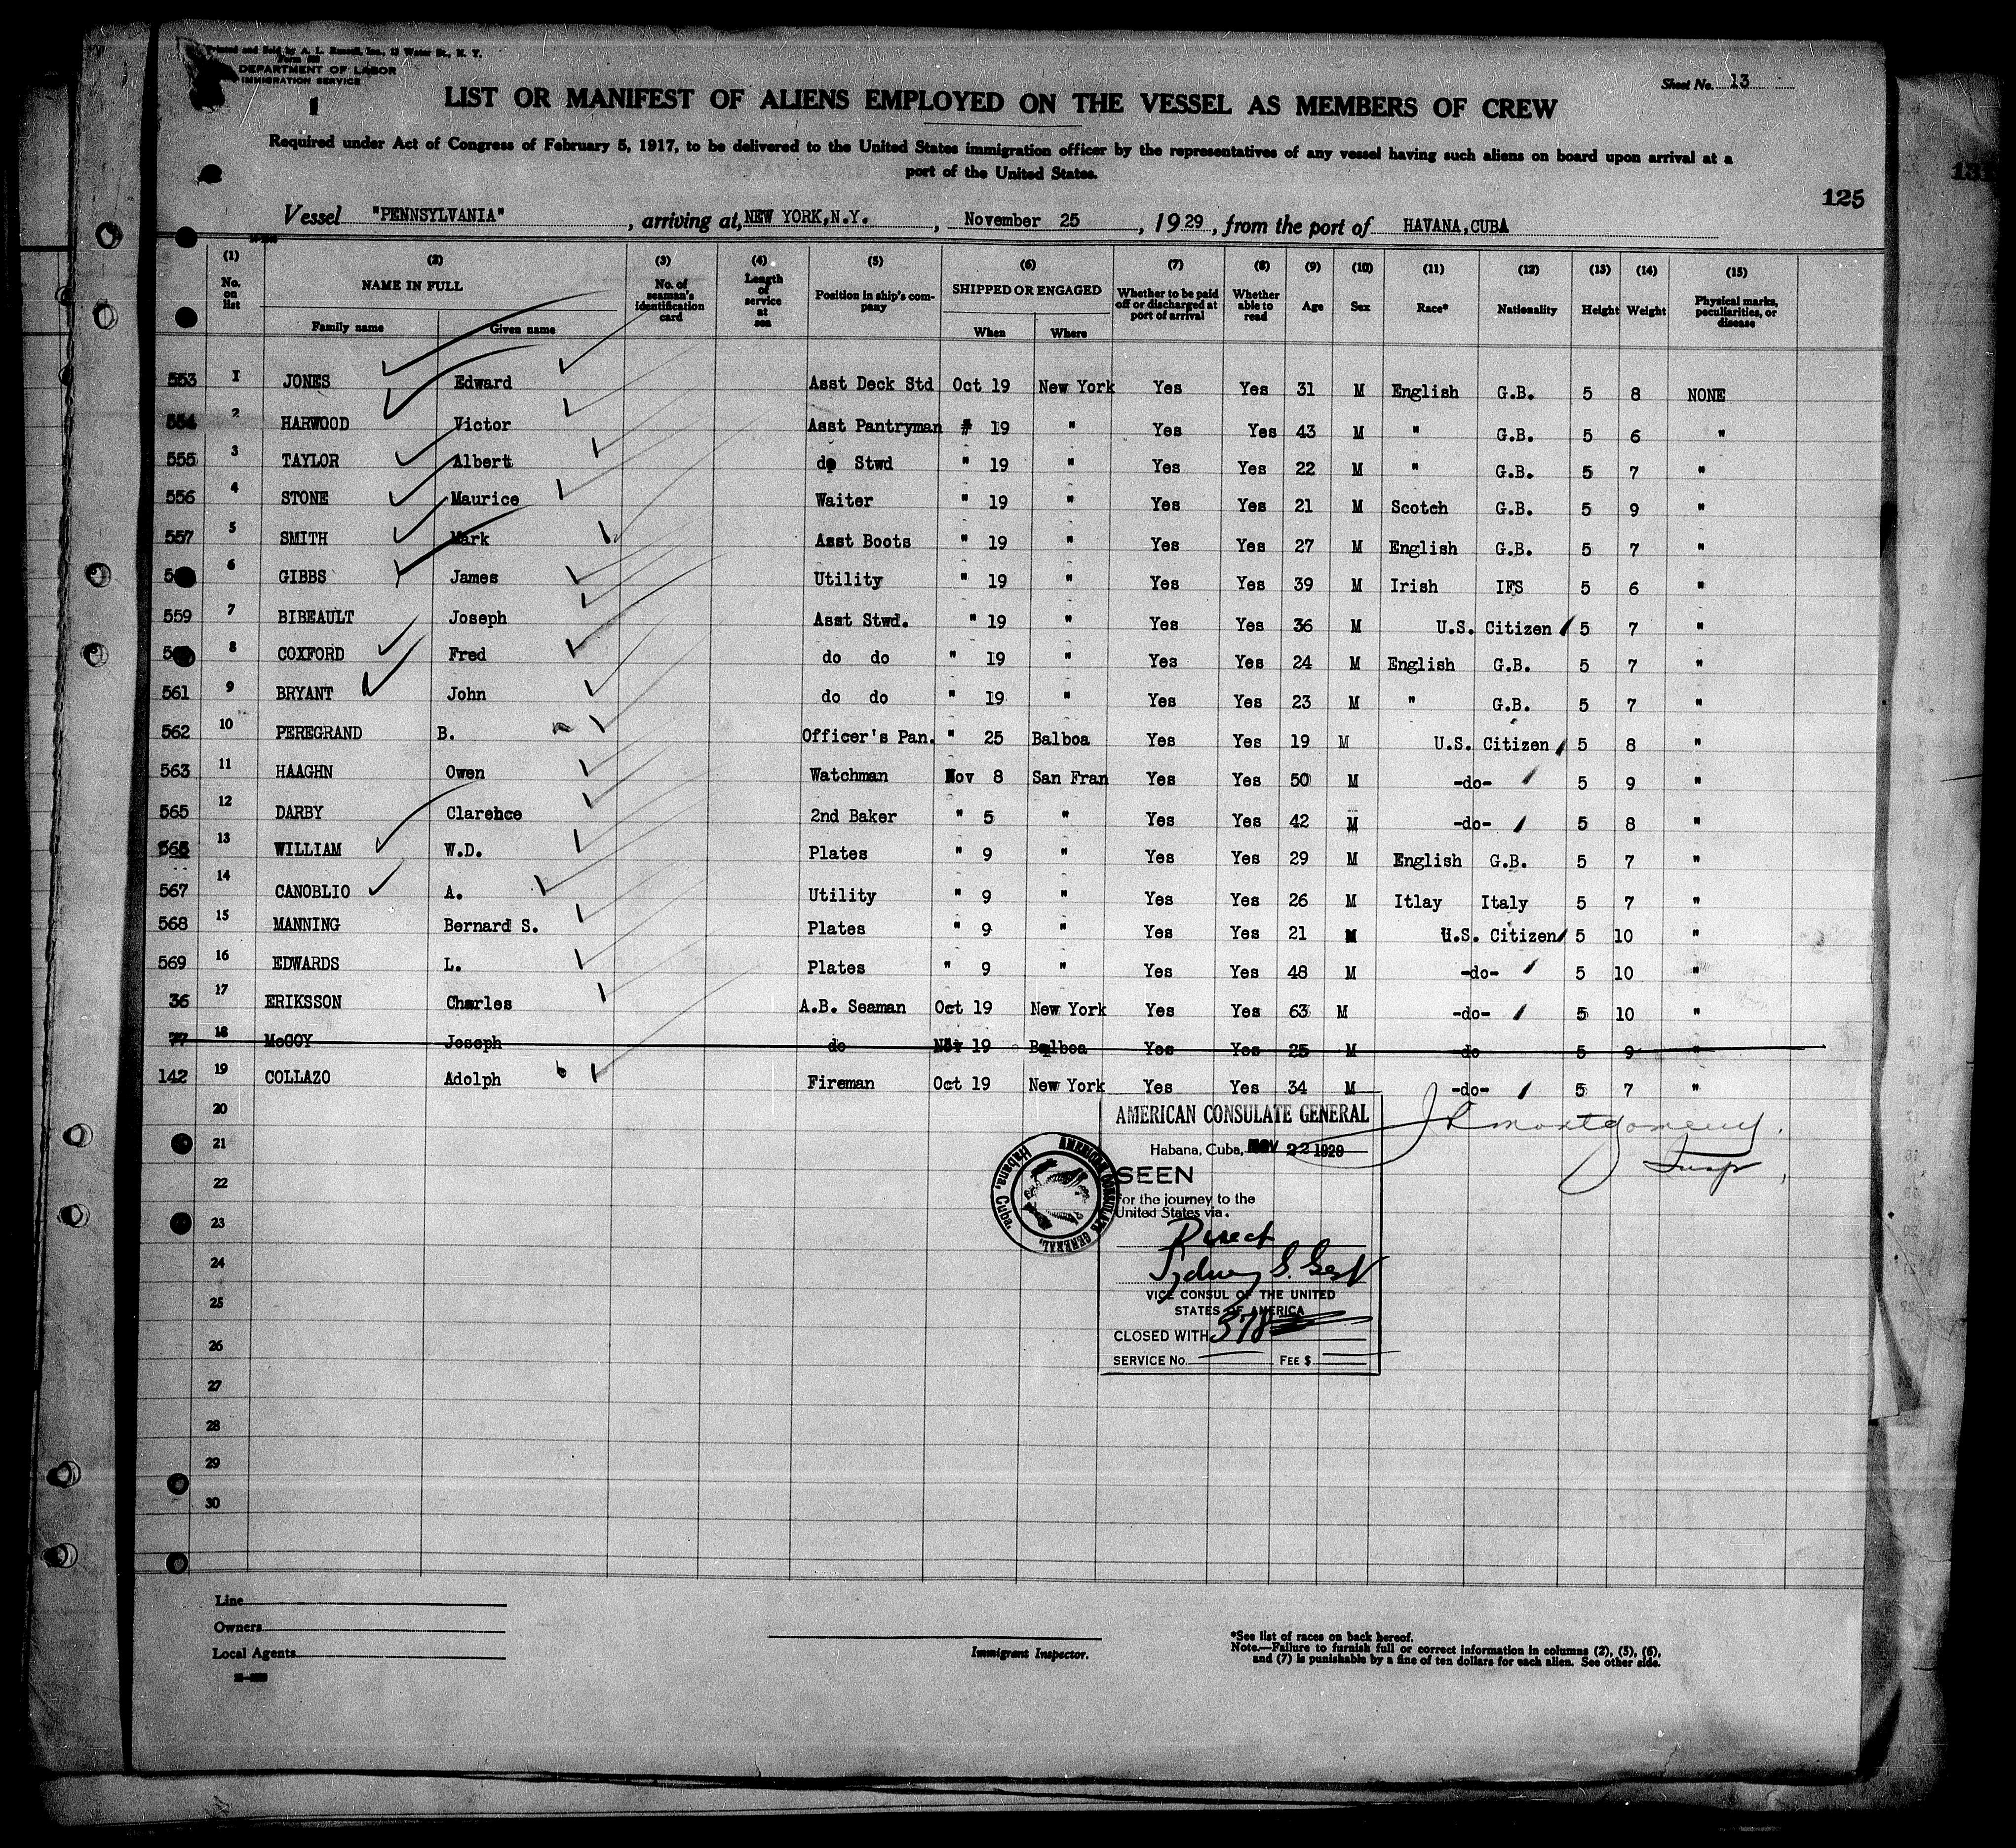 Printed and Sold by A. L. Russell, Inc., 12 Water St., N. Y.
DEPARTMENT OF LABOR
IMMIGRATION SERVICE
1
Sheet No. 13
LIST OR MANIFEST OF ALIENS EMPLOYED ON THE VESSEL AS MEMBERS OF CREW
Required under Act of Congress of February 5, 1917, to be delivered to the United States immigration officer by the representatives of any vessel having such aliens on board upon arrival at a
port of the United States.
131
125
Vessel "PENNSYLVANIA", arriving at, NEW YORK,N.Y., November 25, 1929, from the port of HAVANA,CUBA
(1) (2) (3) (4) (5) (6) (7) (8) (9) (10) (11) (12) (13) (14) (15)
No. on list NAME IN FULL No. of seaman's identification card Length of service at sea Position in ship's company SHIPPED OR ENGAGED Whether to be paid off or discharged at port of arrival Whether able to read Age Sex Race* Nationality Height Weight Physical marks, peculiarities, or disease
Family name Given name When Where
553 1 JONES Edward Asst Deck Std Oct 19 New York Yes Yes 31 M English G.B. 5 8 NONE
554 2 HARWOOD Victor Asst Pantryman " 19 " Yes Yes 43 M " G.B. 5 6 "
555 3 TAYLOR Albert do Stwd " 19 " Yes Yes 22 M " G.B. 5 7 "
556 4 STONE Maurice Waiter " 19 " Yes Yes 21 M Scotch G.B. 5 9 "
557 5 SMITH Mark Asst Boots " 19 " Yes Yes 27 M English G.B. 5 7 "
6 GIBBS James Utility " 19 " Yes Yes 39 M Irish IFS 5 6 "
559 7 BIBEAULT Joseph Asst Stwd. " 19 " Yes Yes 36 M U.S. Citizen 5 7 "
8 COXFORD Fred do do " 19 " Yes Yes 24 M English G.B. 5 7 "
561 9 BRYANT John do do " 19 " Yes Yes 23 M " G.B. 5 7 "
562 10 PEREGRAND B. Officer's Pan. " 25 Balboa Yes Yes 19 M U.S. Citizen 5 8 "
563 11 HAAGHN Owen Watchman Nov 8 San Fran Yes Yes 50 M -do- 5 9 "
565 12 DARBY Clarence 2nd Baker " 5 " Yes Yes 42 M -do- 5 8 "
13 WILLIAM W.D. Plates " 9 " Yes Yes 29 M English G.B. 5 7 "
567 14 CANOBLIO A. Utility " 9 " Yes Yes 26 M Itlay Italy 5 7 "
568 15 MANNING Bernard S. Plates " 9 " Yes Yes 21 M U.S. Citizen 5 10 "
569 16 EDWARDS L. Plates " 9 " Yes Yes 48 M -do- 5 10 "
36 17 ERIKSSON Charles A.B. Seaman Oct 19 New York Yes Yes 63 M -do- 5 10 "
77 18 McCOY Joseph do Nov 19 Balboa Yes Yes 25 M -do 5 9 "
142 19 COLLAZO Adolph Fireman Oct 19 New York Yes Yes 34 M -do- 5 7 "
20
21
22
23
24
25
26
27
28
29
30
AMERICAN CONSULATE GENERAL
Habana, Cuba, NOV 22 1929
SEEN
For the journey to the
United States via.
Direct
Sydney S.
VICE CONSUL OF THE UNITED
STATES OF AMERICA
CLOSED WITH 378
SERVICE No. FEE $
AMERICAN CONSULATE GENERAL, Habana, Cuba.
Montgomery.
Insp.
Line
Owners
Local Agents
Immigrant Inspector.
*See list of races on back hereof.
Note.—Failure to furnish full or correct information in columns (2), (3), (6),
and (7) is punishable by a fine of ten dollars for each alien. See other side.